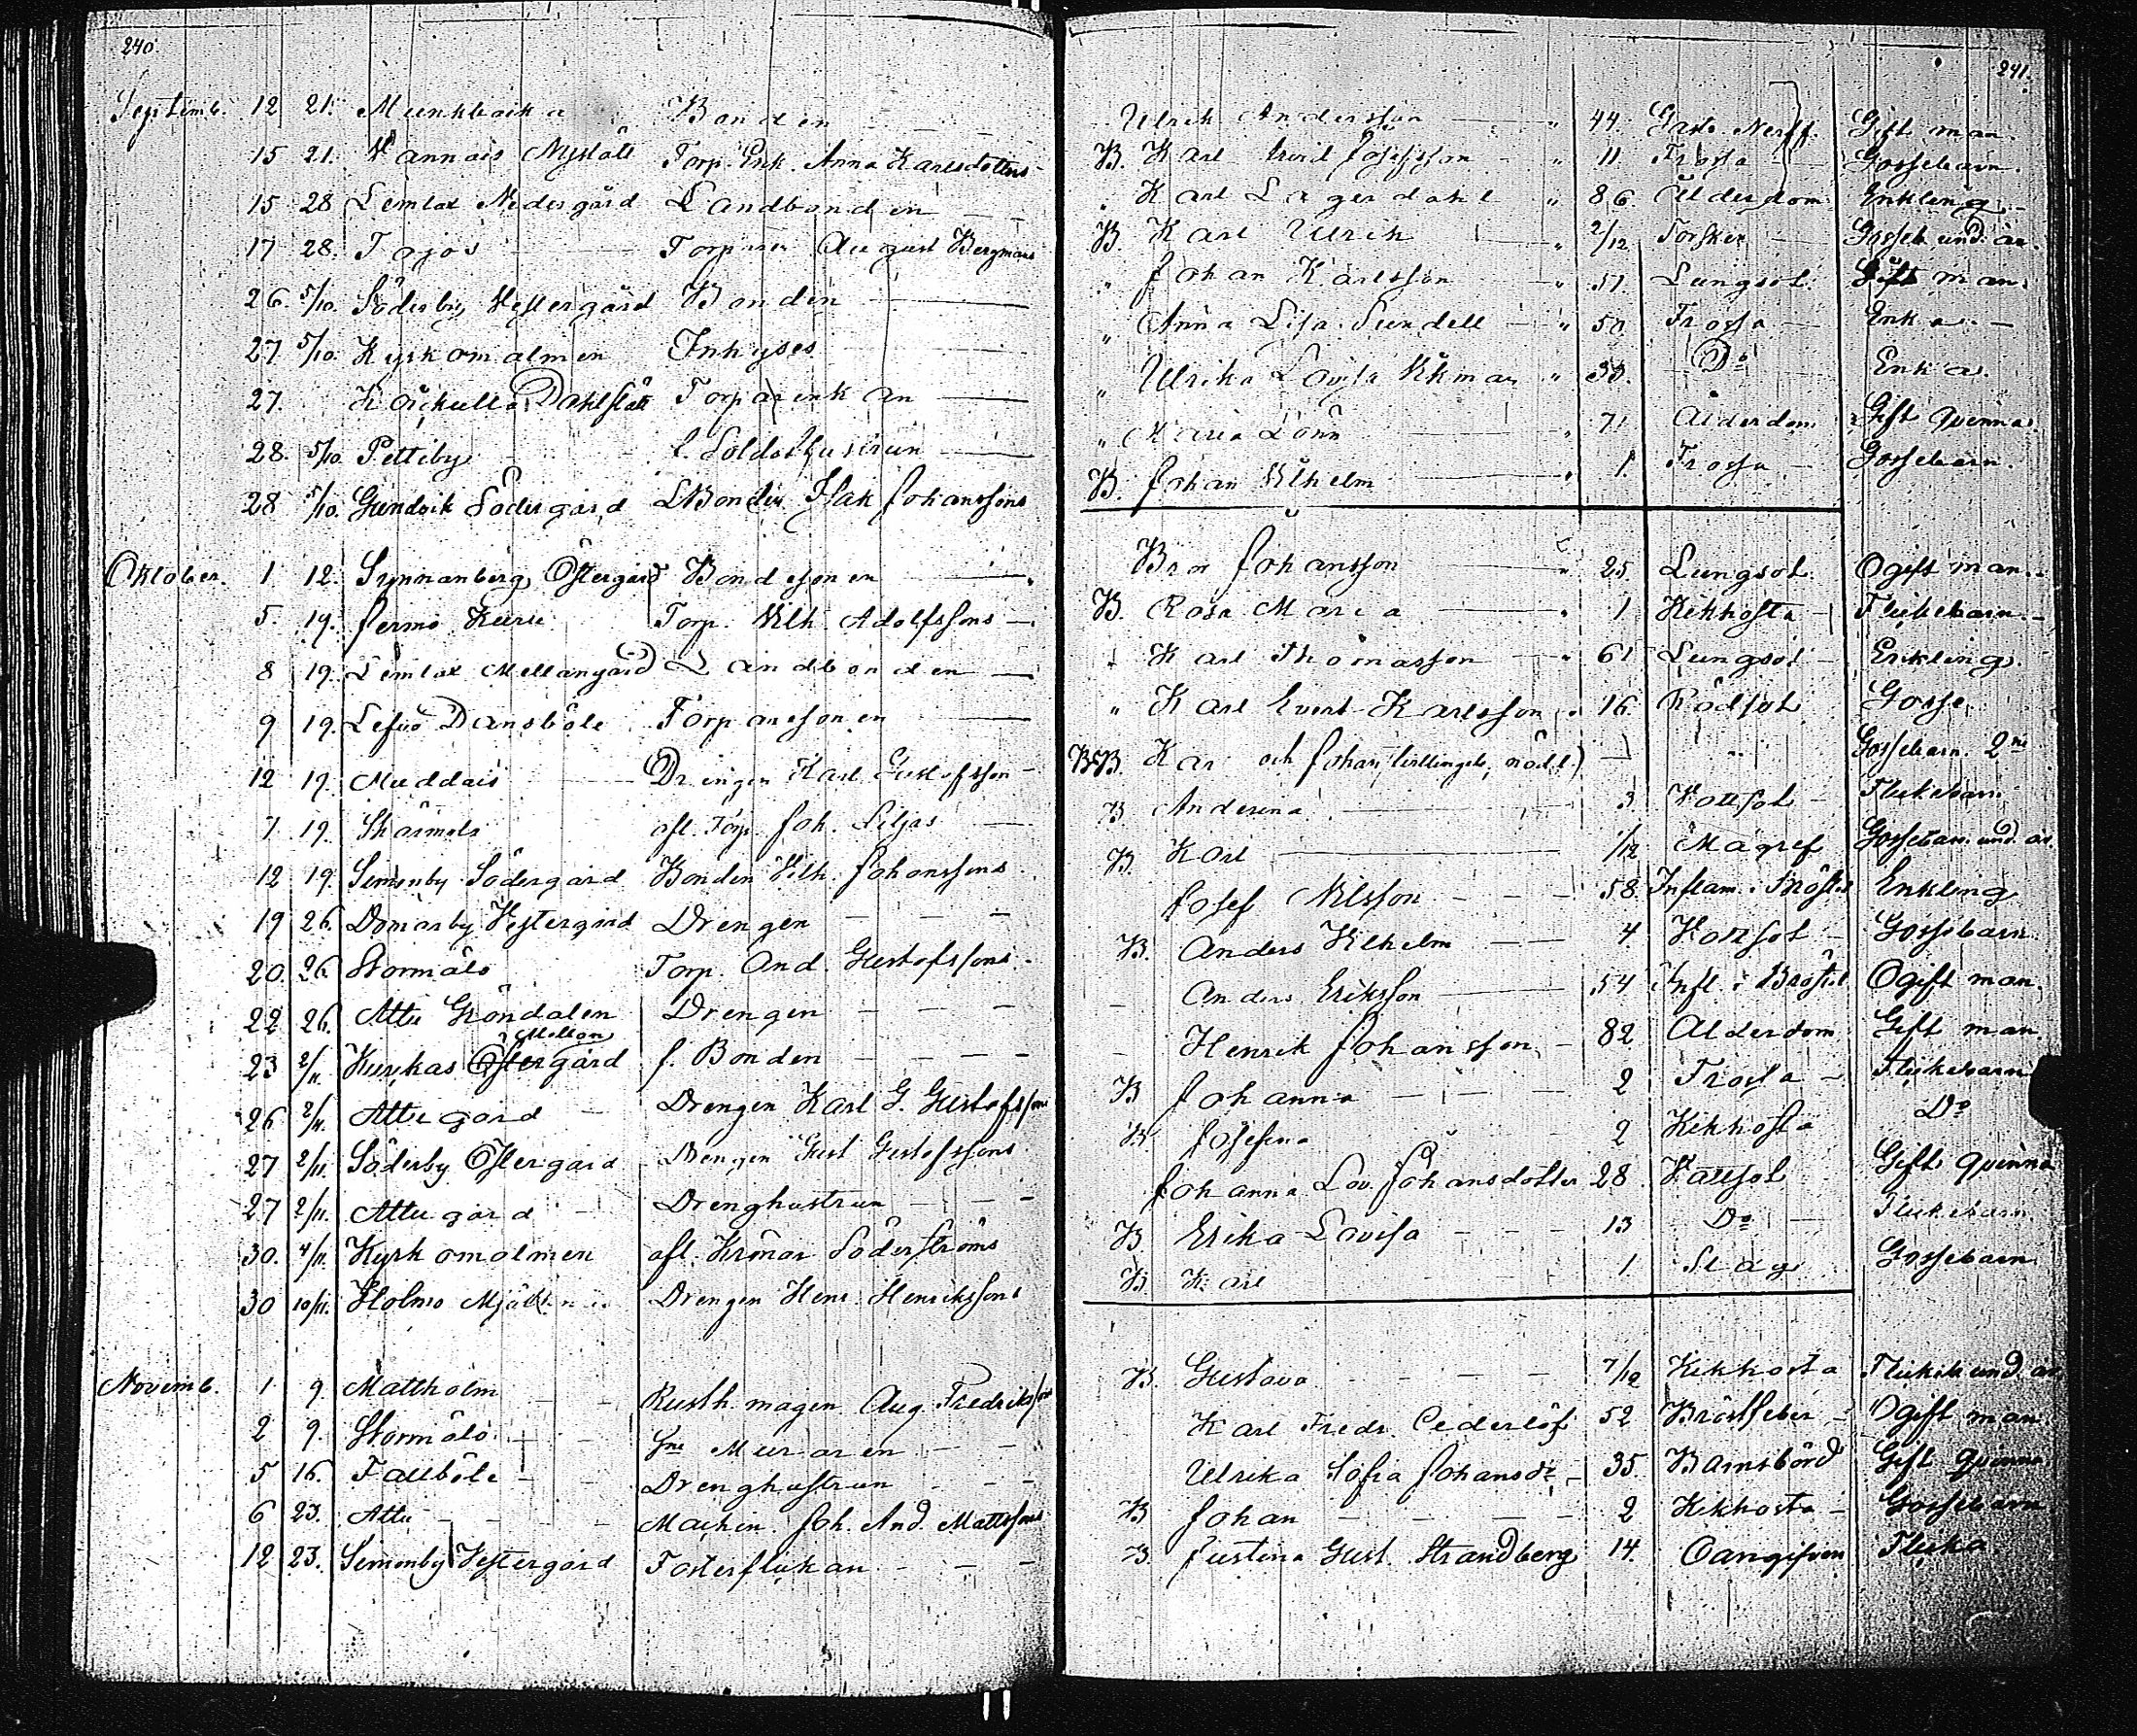 240
Septemb. 12 21. Munkbacka Bonden
15 21. Vannais Nystölt Torp. Enk. Anna Karlsdotters
15 28 Lemlax Nedergård Landbonden
17 28. Tojos Torparen August Bergmans
26. 5/10. Söderby Vestergård Bonden
27 5/10. Kyrkomalmen Inhyses
27. Dahlslätt Torparenkan
28. 5/10 Pettiby f. Soldathustrun
28 5/10. Gundvik Södergård LBonden Isak Johanssons
Oktober. 1 12. Sunnanberg Östergård Bondesonen
5. 19. Jermo Kuru Torp. Vilh. Adolfssons
8 19. Lemlax Mellangård Landbonden
9 19. Lofsö Dansböle Torparesonen
12 19. Muddais Drengen Karl Gustafsson
7 19. Skärmola afl. Torp. Joh. Liljas
12 19. Simonby Södergård Bonden Vilh. Johanssons
19 26. Domarby Vestergård Drengen
20. 26. Stormälö Torp. And. Gustafssons
22 26. Attu Gröndalen Drengen
Mellan
23 2/11. Kurkas Östergård f. Bonden
26 2/11. Attu gård Drengen Karl G. Gustafssons
27 2/11. Söderby Östergård Drengen Gust Gustafssons
27 2/11. Attu gård Drenghustrun
30. 4/11. Kyrkomalmen afl. Krämar Söderströms
30 10/11. Holmo Drengen Henr. Henrikssons
Novemb. 1 9. Mattholm Rusth. magen Aug Fredrikssons
2 9. Stormälö Muraren
5 16. Fallböle Drenghustrun
6 23. Attu Machen. Joh. And. Mattssons
12 23. Simonby Vestergård Fosterflickan
241.
Ulrik Andersson 44. Nerff. Gift man.
B. Karl Arvid Josefsson 11 Frossa Gossebarn.
Karl Lagerdahl 86. Ålderdom Enkling
B. Karl Ulrik 2/12 Torsken Gosseb. und. år.
Johan Karlsson 51 Lungsot. Gift man.
Anna Lisa Sundell 50 Frossa Enka
Ulrika Lovisa Ekman 33. Do Enka.
Maria Lönn 71 Ålderdom Gift qvinna
B. Johan Vilhelm 1. Frossa Gossebarn.
Bror Johansson 25. Lungsot. Ogift man.
B. Rosa Maria 1 Kikhosta Flickebarn.
Karl Thomasson 61 Lungsot Enkling.
Karl Evert Karlsson 16. Rödsot Gosse
B&B. Karl och Johan (tvillingar, nödd.) Gossebarn. 2ne
B Anderina 3 Vattsot Flickebarn
B Karl 1/12 Magref Gossebarn. und. år
Josef Nilsson 58. Inflam. i Bröstet Enkling
B Anders Vilhelm 4. Vattsot Gossebarn.
Anders Eriksson 54 Infl. i Bröstet Ogift man.
Henrik Johansson 82 Ålderdom Gift man
B Johanna 2 Frossa Flickebarn
B Josefina 2 Kikhosta Do
Johanna Lov. Johansdotter 28. Vattsot Gift qvinna
B Erika Lovisa 13 Do Flickebarn.
B Karl 1 Slag Gossebarn
B. Gustava 7/12 Kikhosta Flickeb. und. år
Karl Fredr. Cederlöf 52 Bröstfeber Ogift man
Ulrika Sofia Johansdr 35. Barnsbörd Gift qvinna
B Johan 2 Kikhosta Gossebarn
B. Justina Gust. Strandberg 14. Oangifven Flicka